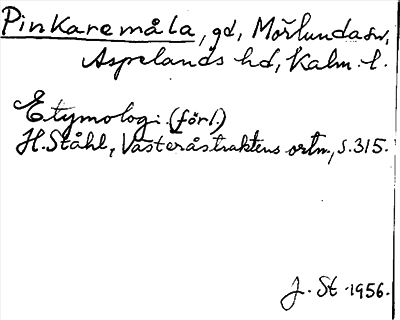 Pinkaremåla, gd, Mörlunda sn,
Aspelands hd, Kalm. l.
Etymologi (förl.)
H. Ståhl, Västeråstraktens ortn., s. 315.
J. St. 1956.